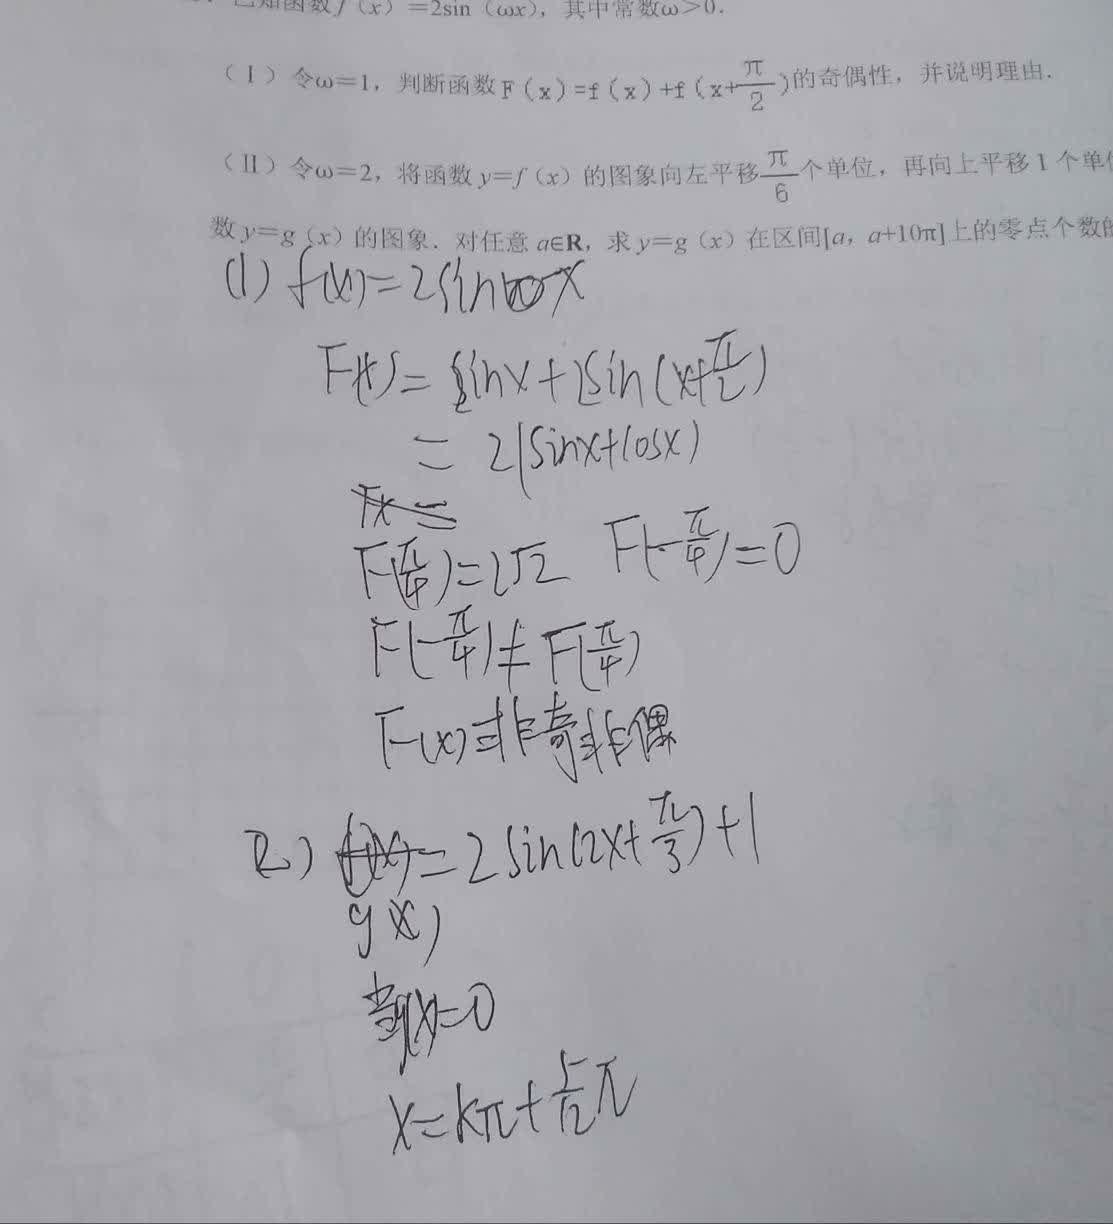 已知函数f(x)=2sin(ωx),其中常数ω>0.
(Ⅰ)令ω=1,判断函数F(x)=f(x)+f(x+π/2)的奇偶性,并说明理由.
(Ⅱ)令ω=2,将函数y=f(x)的图象向左平移π/6个单位,再向上平移1个单位
数y=g(x)的图象.对任意a∈R,求y=g(x)在区间[a,a+10π]上的零点个数的
(1) f(x)=2sin x
F(x)=2sinx+2sin(x+π/2)
=2(sinx+cosx)
Fx=
F(π/4)=2√2 F(-π/4)=0
F(-π/4)≠F(π/4)
F(x)非奇非偶
(2) f(x)=2sin(2x+π/3)+1
g(x)
当g(x)=0
x=kπ+5/12π